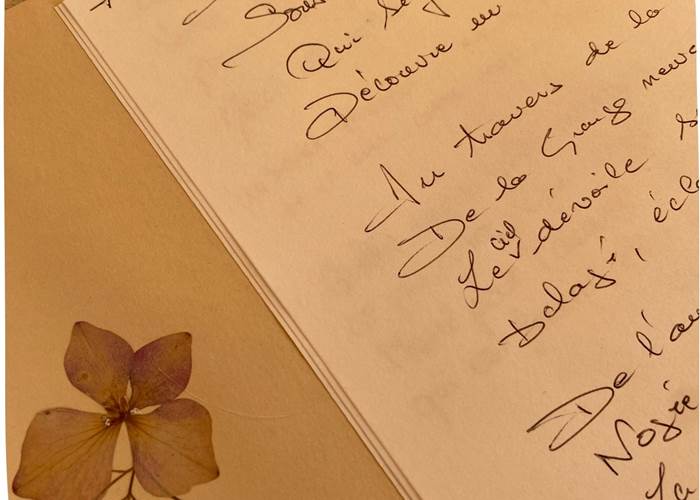 Sous
Qui se
Découvre un
Au travers de la
De la Grange
Le ciel dévoile s
Delavé, écl
De l'au
Noyée
La